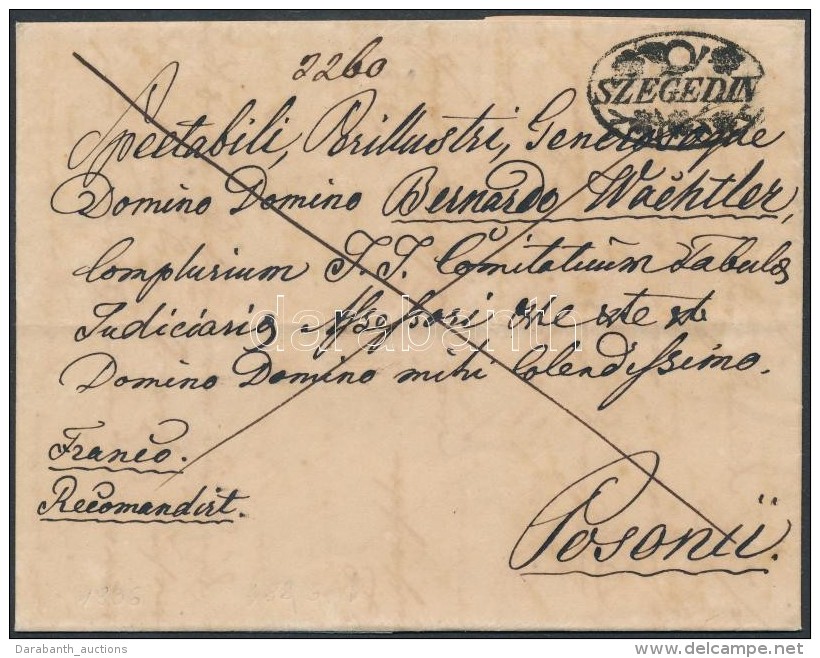 2260
SZEGEDIN
Spectabili, Perillustri, Generosoque
Domino Domino Bernardo Wachtler,
Complurium I. I. Comitatuum Tabulæ
Judiciariæ Assessori
Domino Domino mihi Colendissimo.
Franco.
Recomandirt.
Posonii.
darabanth
Darabanth_auctions
www.delcampe.net